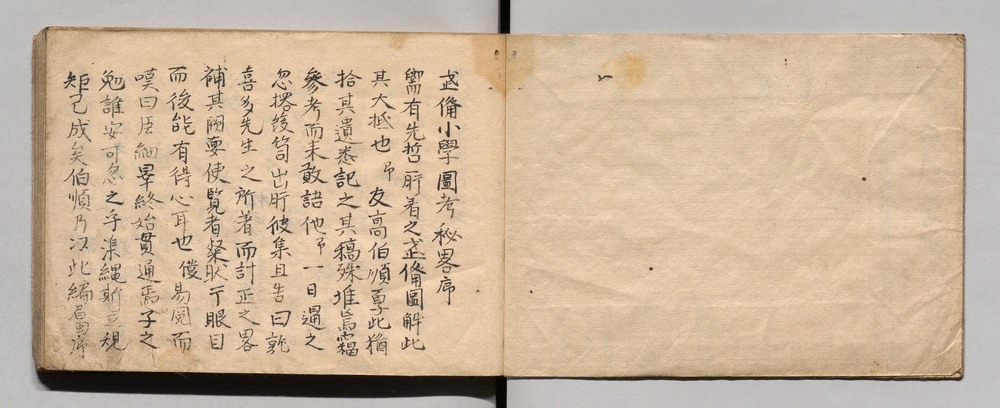 武備小學圖考秘畧序
嚮有先哲所着之武備圖解此
其大抵也予友高伯順享此猶
拾其遺悉記之其稿殊堆焉竊
參考而未敢語他予一日過之
忽撂筐笥出所彼集且告曰乾
喜多先生之所者而計正之畧
補其闕要使覧者粲然于眼目
而後能有得心耳也僕易閲而
嘆曰臣細畢終始貫通焉子之
勉誰安可忽之乎準縄斯立規
矩已成矣伯順乃以此編